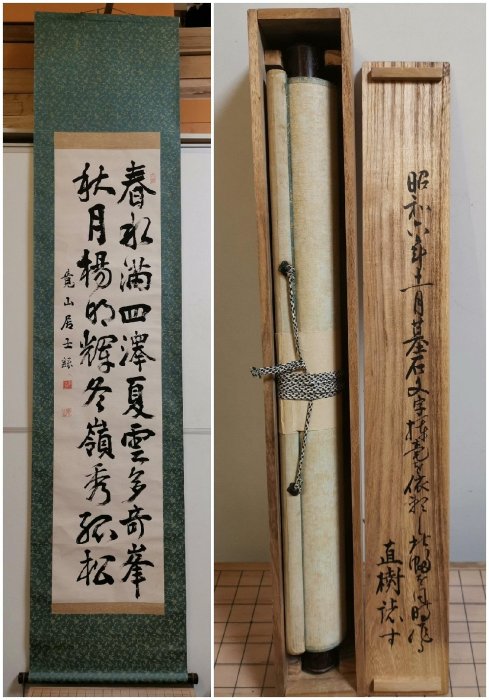 春水滿四澤夏雲多奇峯
秋月楊明輝冬嶺秀孤松
山居士録
昭和六年十一月墓石文字揮毫依頼
直樹誌す